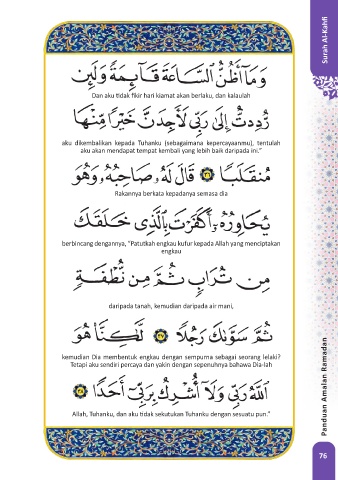 Surah Al-Kahfi
وَمَآ أَظُنُّ ٱلسَّاعَةَ قَآئِمَةً وَلَئِن
Dan aku tidak fikir hari kiamat akan berlaku, dan kalaulah
رُّدِدتُّ إِلَىٰ رَبِّى لَأَجِدَنَّ خَيْرًا مِّنْهَا
aku dikembalikan kepada Tuhanku (sebagaimana kepercayaanmu), tentulah
aku akan mendapat tempat kembali yang lebih baik daripada ini."
مُنقَلَبًا ٣٦ قَالَ لَهُۥ صَاحِبُهُۥ وَهُوَ
Rakannya berkata kepadanya semasa dia
يُحَاوِرُهُۥٓ أَكَفَرْتَ بِٱلَّذِى خَلَقَكَ
berbincang dengannya, "Patutkah engkau kufur kepada Allah yang menciptakan
engkau
مِن تُرَابٍ ثُمَّ مِن نُّطْفَةٍ
daripada tanah, kemudian daripada air mani,
ثُمَّ سَوَّىٰكَ رَجُلًا ٣٧ لَّٰكِنَّا۠ هُوَ
kemudian Dia membentuk engkau dengan sempurna sebagai seorang lelaki?
Tetapi aku sendiri percaya dan yakin dengan sepenuhnya bahawa Dia-lah
ٱللَّهُ رَبِّى وَلَآ أُشْرِكُ بِرَبِّىٓ أَحَدًا ٣٨
Allah, Tuhanku, dan aku tidak sekutukan Tuhanku dengan sesuatu pun."
Panduan Amalan Ramadan
76